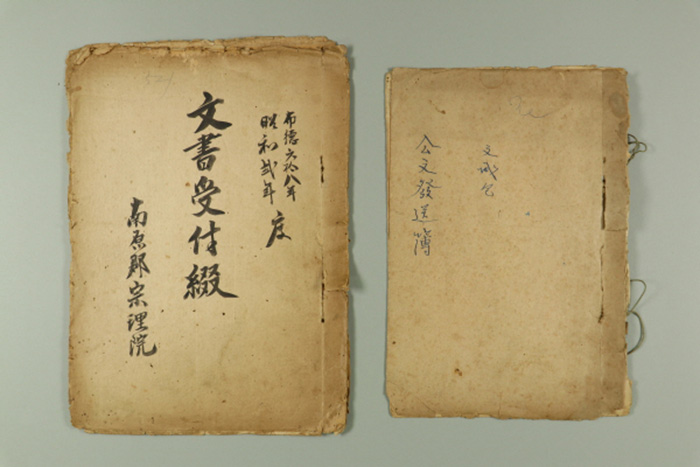 布德六拾八年
昭和弐年 度
文書受付綴
南原郡宗理院
公文發送簿